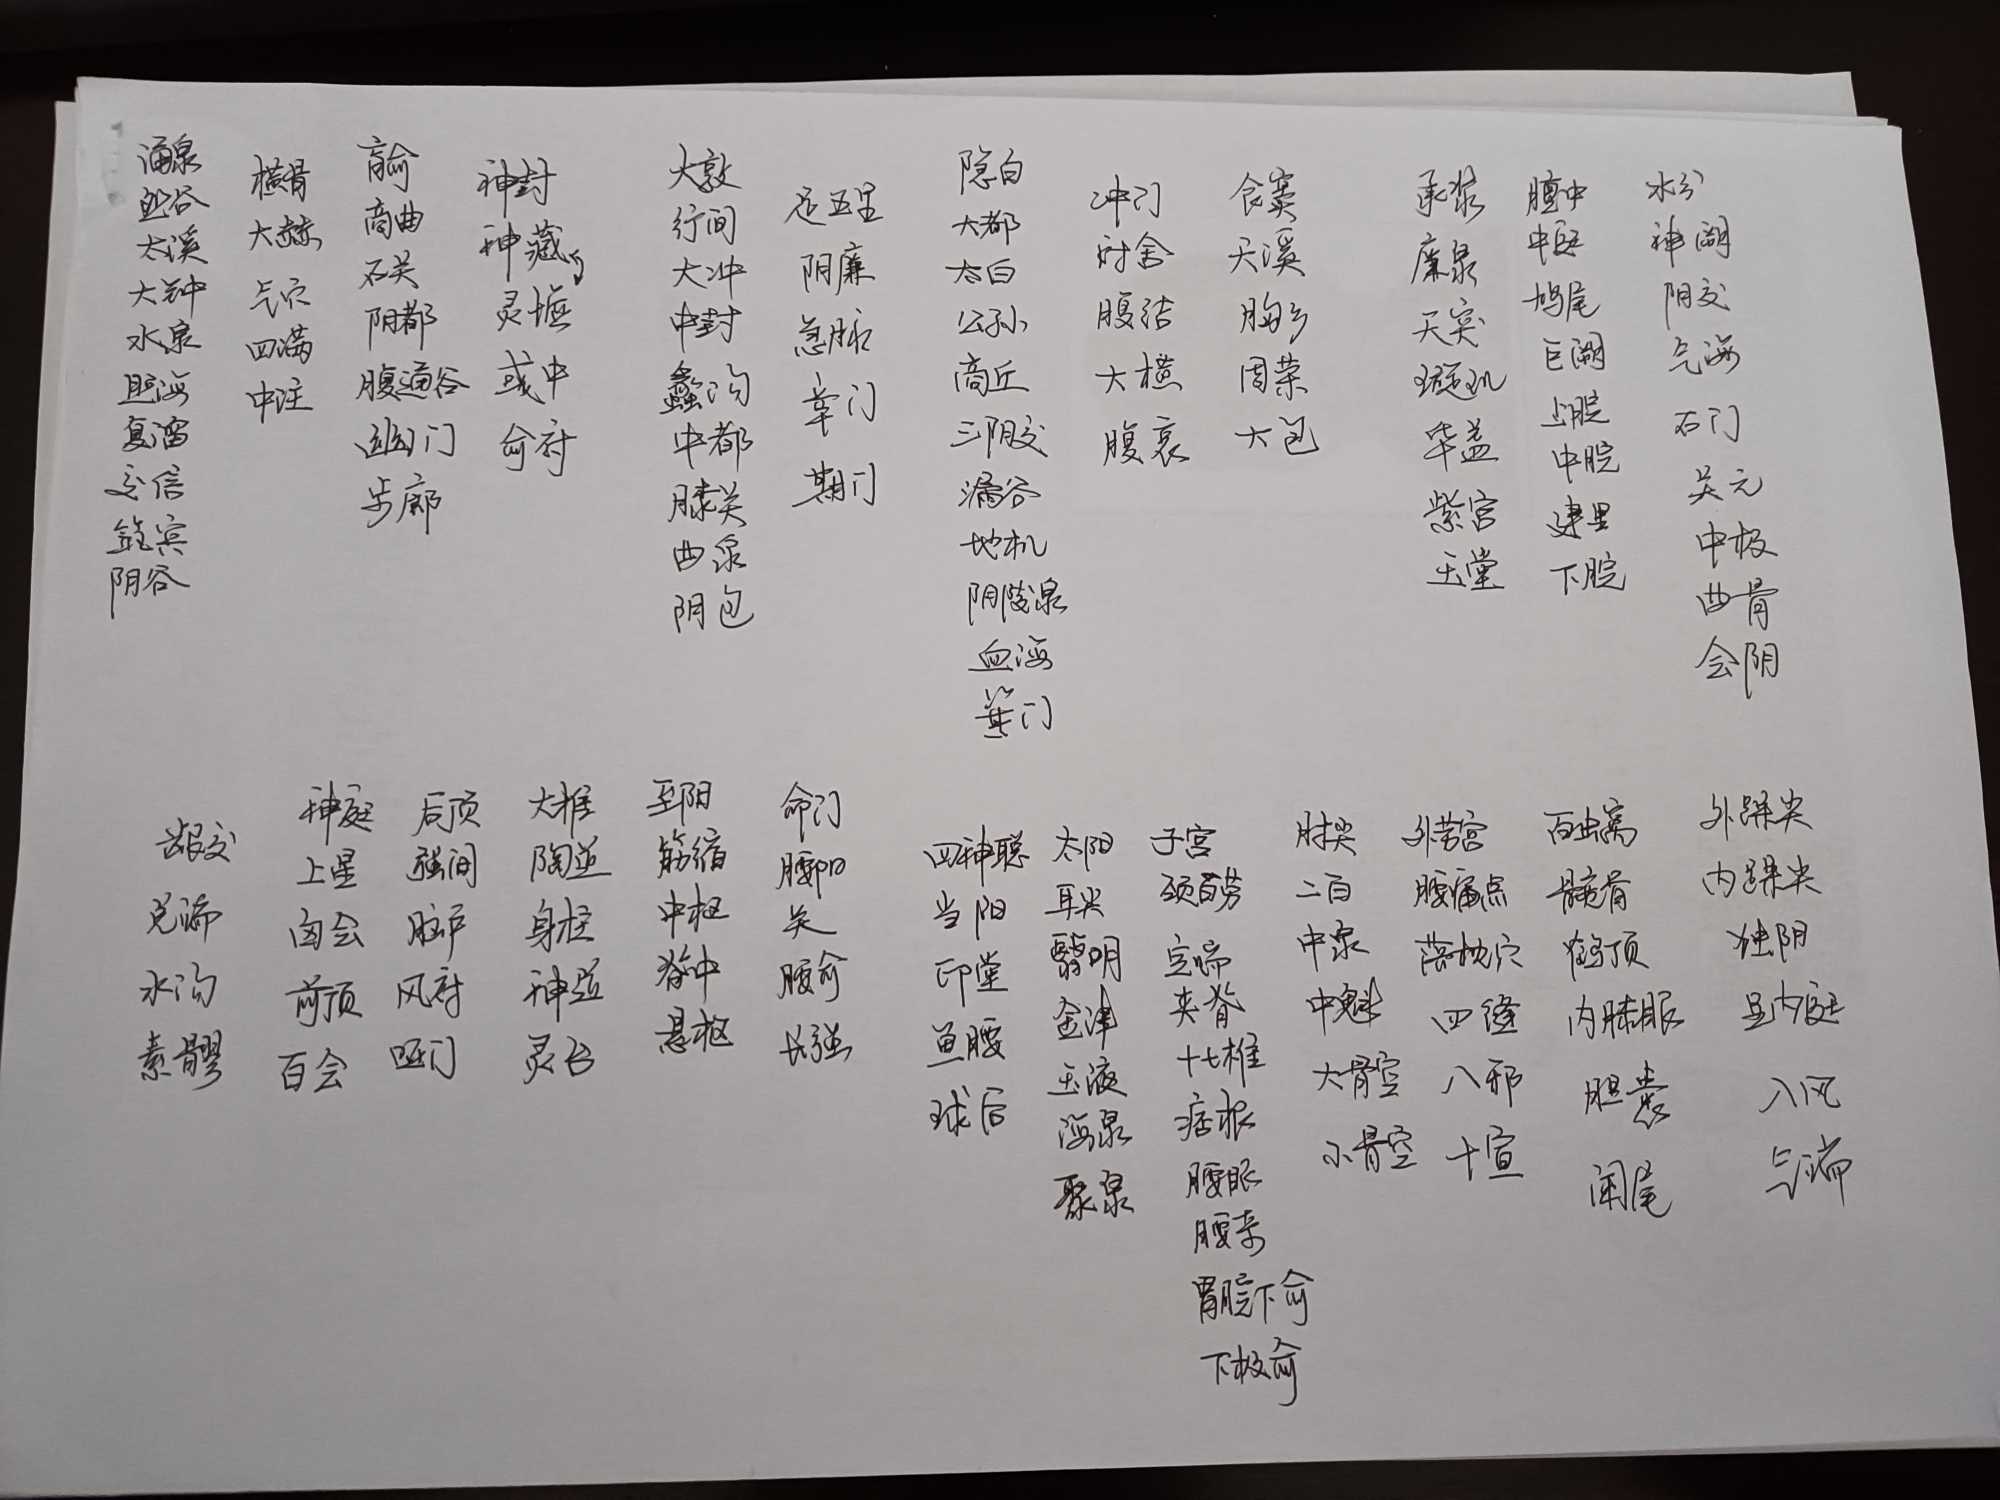 涌泉
然谷
太溪
大钟
水泉
照海
复溜
交信
筑宾
阴谷
横骨
大赫
气穴
四满
中注
肓俞
商曲
石关
阴都
腹通谷
幽门
步廊
神封
神藏
灵墟
或中
俞府
大敦
行间
太冲
中封
蠡沟
中都
膝关
曲泉
阴包
足五里
阴廉
急脉
章门
期门
隐白
大都
太白
公孙
商丘
三阴交
漏谷
地机
阴陵泉
血海
箕门
冲门
府舍
腹结
大横
腹哀
食窦
天溪
胸乡
周荣
大包
承浆
廉泉
天突
璇玑
华盖
紫宫
玉堂
膻中
中庭
鸠尾
巨阙
上脘
中脘
建里
下脘
水分
神阙
阴交
气海
石门
关元
中极
曲骨
会阴
龈交
兑端
水沟
素髎
神庭
上星
囟会
前顶
百会
后顶
强间
脑户
风府
哑门
大椎
陶道
身柱
神道
灵台
至阳
筋缩
中枢
脊中
悬枢
命门
腰阳
关
腰俞
长强
四神聪
当阳
印堂
鱼腰
球后
太阳
耳尖
翳明
金津
玉液
海泉
聚泉
子宫
颈百劳
定喘
夹脊
十七椎
痞根
腰眼
腰奇
胃脘下俞
下极俞
肘尖
二白
中泉
中魁
大骨空
小骨空
外劳宫
腰痛点
落枕穴
四缝
八邪
十宣
百虫窝
髋骨
鹤顶
内膝眼
胆囊
阑尾
外踝尖
内踝尖
独阴
足内庭
八风
气端